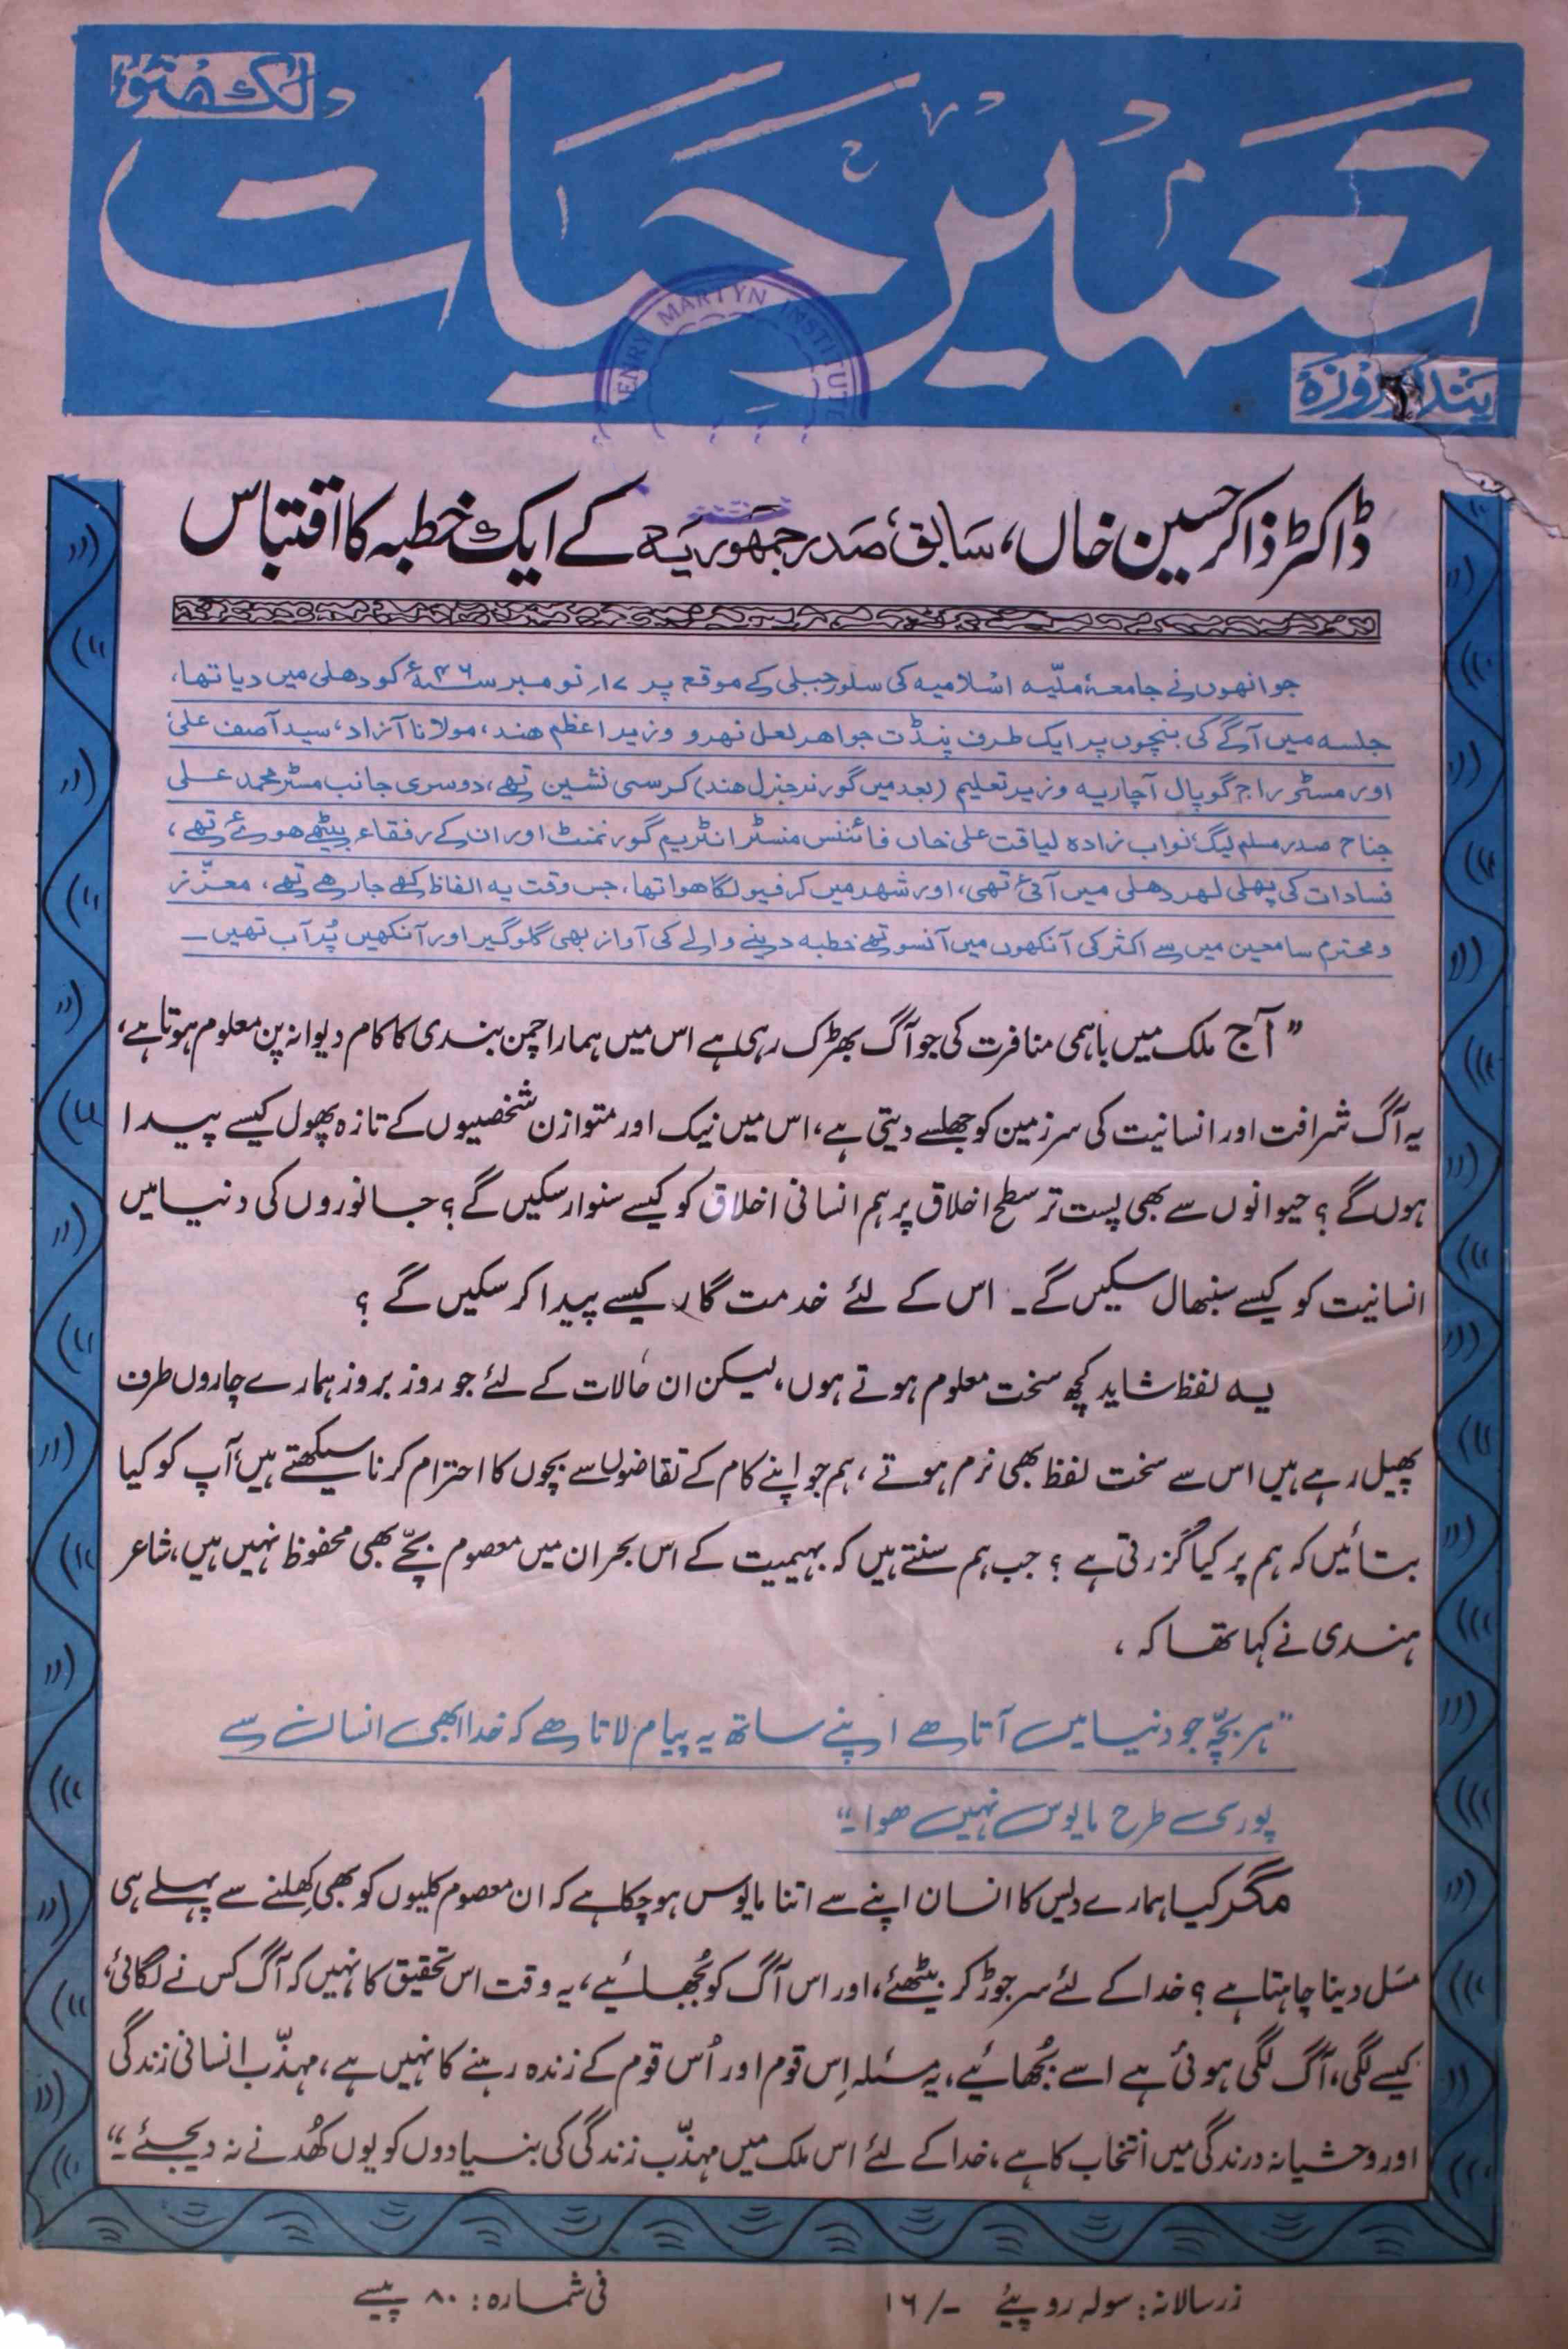 لکھنؤ
تعمیر حیات
پندرہ روزہ
HENRY MARTYN INSTITUTE
ڈاکٹر ذاکر حسین خاں، سابق صدر جمہوریہ کے ایک خطبہ کا اقتباس
جو انھوں نے جامعۂ ملّیہ اسلامیہ کی سلور جبلی کے موقع پر ۱۷ نومبر ۴۶ء کو دھلی میں دیا تھا،
جلسہ میں آگے کی بنچوں پر ایک طرف پنڈت جواھر لعل نہرو وزیر اعظم ھند، مولانا آزاد، سید آصف علی
اور مسٹر راج گوپال آچاریہ وزیر تعلیم (بعد میں گورنر جنرل ھند) کرسی نشین تھے، دوسری جانب مسٹر محمد علی
جناح صدر مسلم لیگ نواب زادہ لیاقت علی خاں فائننس منسٹر انٹریم گورنمنٹ اور ان کے رفقاء بیٹھے ھوئے تھے،
فسادات کی پھلی لھر دھلی میں آئی تھی، اور شھر میں کرفیو لگا ھوا تھا، جس وقت یہ الفاظ کھے جا رھے تھے، معزّز
و محترم سامعین میں سے اکثر کی آنکھوں میں آنسو تھے خطبہ دینے والے کی آواز بھی گلوگیر اور آنکھیں پُر آب تھیں ـ
”آج ملک میں باہمی منافرت کی جو آگ بھڑک رہی ہے اس میں ہمارا چمن بندی کا کام دیوانہ پن معلوم ہوتا ہے،
یہ آگ شرافت اور انسانیت کی سرزمین کو جھلسے دیتی ہے، اس میں نیک اور متوازن شخصیوں کے تازہ پھول کیسے پیدا
ہوں گے؟ حیوانوں سے بھی پست تر سطح اخلاق پر ہم انسانی اخلاق کو کیسے سنوار سکیں گے؟ جانوروں کی دنیا میں
انسانیت کو کیسے سنبھال سکیں گے۔ اس کے لئے خدمت گار کیسے پیدا کر سکیں گے؟
یہ لفظ شاید کچھ سخت معلوم ہوتے ہوں، لیکن ان حالات کے لئے جو روز بروز ہمارے چاروں طرف
پھیل رہے ہیں اس سے سخت لفظ بھی نرم ہوتے، ہم جو اپنے کام کے تقاضوں سے بچوں کا احترام کرنا سیکھتے ہیں، آپ کو کیا
بتائیں کہ ہم پر کیا گزرتی ہے؟ جب ہم سنتے ہیں کہ بہیمیت کے اس بحران میں معصوم بچّے بھی محفوظ نہیں ہیں، شاعر
ہندی نے کہا تھا کہ،
”ہر بچّہ جو دنیا میں آتا ھے اپنے ساتھ یہ پیام لاتا ھے کہ خدا ابھی انسان سے
پوری طرح مایوس نہیں ھوا۔“
مگر کیا ہمارے دیس کا انسان اپنے سے اتنا مایوس ہو چکا ہے کہ ان معصوم کلیوں کو بھی کِھلنے سے پہلے ہی
مَسَل دینا چاہتا ہے؟ خدا کے لئے سر جوڑ کر بیٹھئے، اور اس آگ کو بُجھائیے، یہ وقت اس تحقیق کا نہیں کہ آگ کس نے لگائی،
کیسے لگی، آگ لگی ہوئی ہے اسے بُجھائیے، یہ مسئلہ اِس قوم اور اُس قوم کے زندہ رہنے کا نہیں ہے، مہذّب انسانی زندگی
اور وحشیانہ درندگی میں انتخاب کا ہے، خدا کے لئے اس ملک میں مہذّب زندگی کی بنیادوں کو یوں کھُدنے نہ دیجئے۔“
زرسالانہ: سولہ روپیئے ۱۶/-
فی شمارہ: ۸۰ پیسے